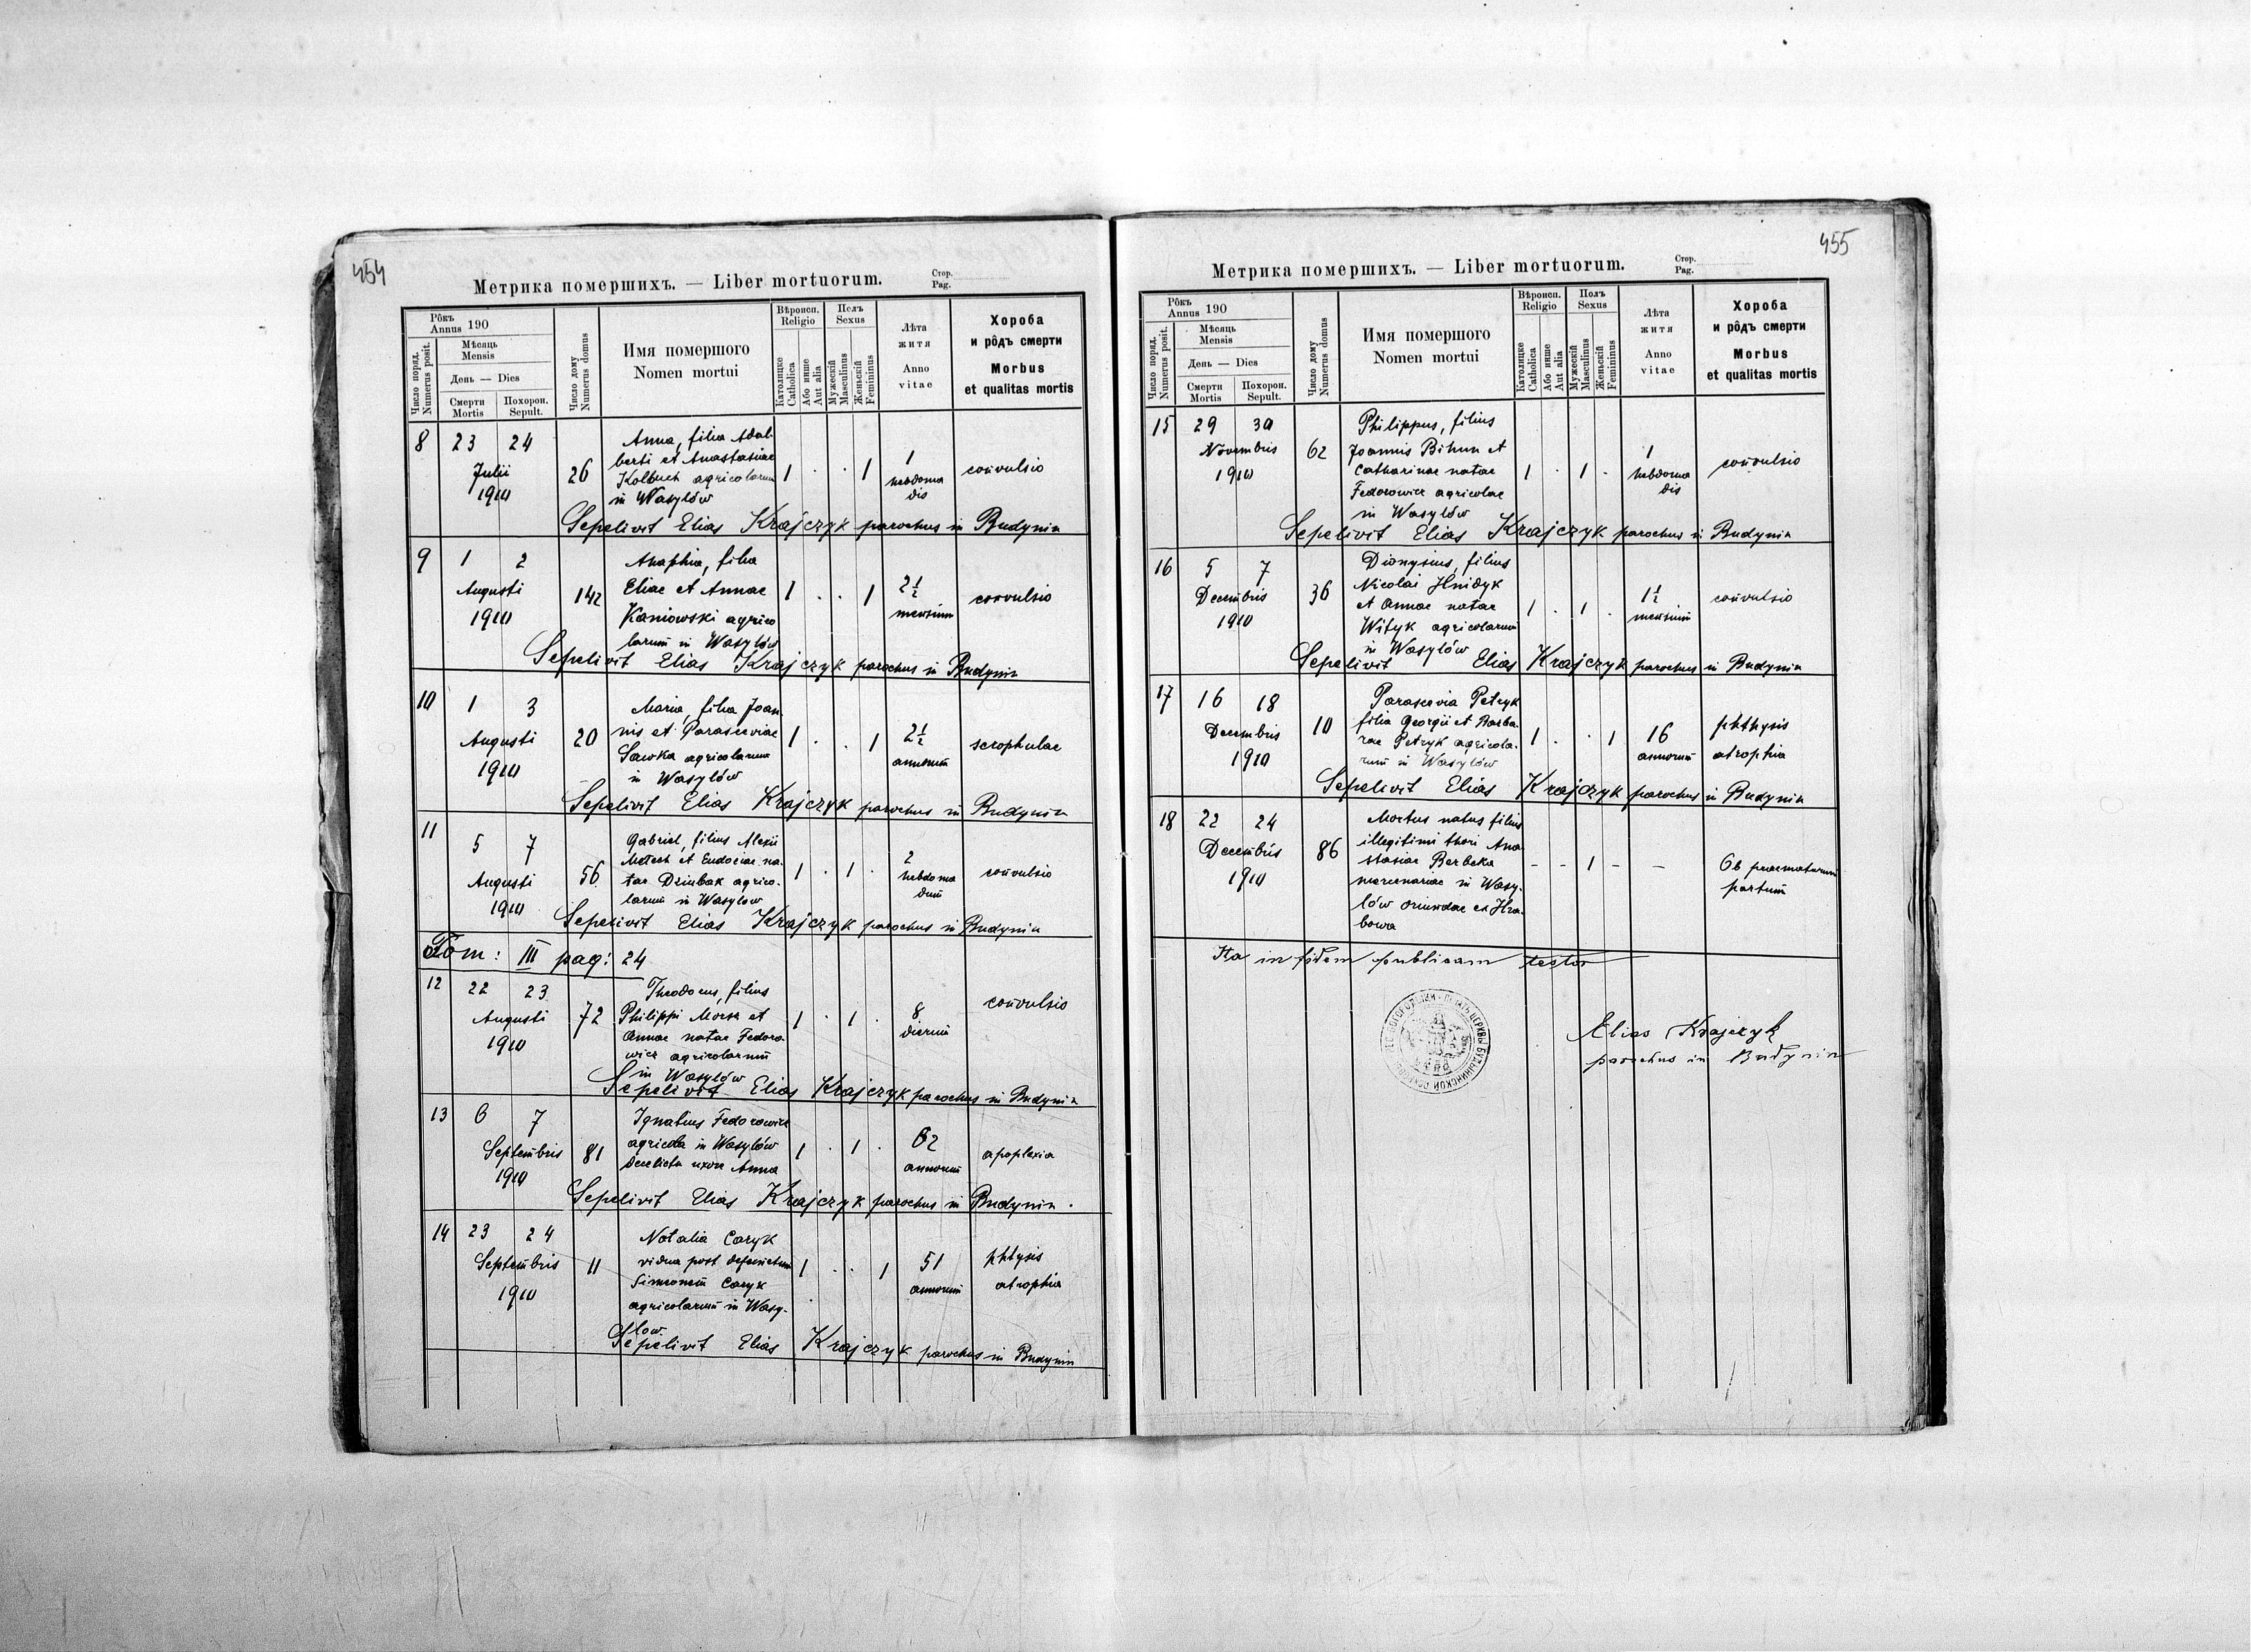 454
Метрика померших. — Liber mortuorum.
Стор.
Pag.
Рôкъ
Annus 190
Мѣсяць
Mensis
День — Dies
Смерти
Mortis
Похорон.
Sepult.
Число поряд.
Numerus posit.
Число дому
Numerus domus
Имя помершого
Nomen mortui
Вѣроисп.
Religio
Католицке
Catholica
Або инше
Aut alia
Полъ
Sexus
Мужескій
Masculinus
Женьскій
Femininus
Лѣта
житя
Anno
vitae
Хороба
и рôдъ смерти
Morbus
et qualitas mortis
8 23 24
Julii
1910
26
Anna, filia Adal-
berti et Anastasiae
Kolbuch agricolarum
in Wasylów
1 . . 1
1
hebdoma
dis
convulsio
Sepelivit Elias Krajczyk parochus in Budynin
9 1 2
Augusti
1910
142
Anaphia, filia
Eliae et Annae
Kaniowski agrico
larum in Wasylów
1 . . 1
2½
mensium
convulsio
Sepelivit Elias Krajczyk parochus in Budynin
10 1 3
Augusti
1910
20
Maria, filia Joan
nis et Parasceviae
Sawka agricolarum
in Wasylów
1 . . 1
2½
annorum
scrophulae
Sepelivit Elias Krajczyk parochus in Budynin
11 5 7
Augusti
1910
56
Gabriel, filius Alexii
et Eudociae na-
tae Dziubak agrico-
larum in Wasylow
1 . 1 .
2
hebdoma
dum
convulsio
Sepelivit Elias Krajczyk parochus in Budynin
Tom: III pag: 24
12 22 23
Augusti
1910
72
Theodorus, filius
Philippi et
Annae natae Fedoro
wicz agricolarum
in Wasylów
1 . 1 .
8
dierum
convulsio
Sepelivit Elias Krajczyk parochus in Budynin
13 6 7
Septembris
1910
81
Ignatius Fedorowicz
agricola in Wasylów
derelicta uxore Anna
1 . 1 .
62
annorum
apoplexia
Sepelivit Elias Krajczyk parochus in Budynin.
14 23 24
Septembris
1910
11
Natalia Caryk
vidua post defunctum
Simeonem Caryk
agricolarum in Wasy-
low.
1 . . 1
51
annorum
phtysis
atrophia
Sepelivit Elias Krajczyk parochus in Budynin
455
Метрика помершихъ. — Liber mortuorum.
Стор.
Pag.
Рôкъ
Annus 190
Мѣсяць
Mensis
День — Dies
Смерти
Mortis
Похорон.
Sepult.
Число поряд.
Numerus posit.
Число дому
Numerus domus
Имя помершого
Nomen mortui
Вѣроисп.
Religio
Католицке
Catholica
Або инше
Aut alia
Полъ
Sexus
Мужескій
Masculinus
Женьскій
Femininus
Лѣта
житя
Anno
vitae
Хороба
и рôдъ смерти
Morbus
et qualitas mortis
15 29 30
Novembris
1910
62
Philippus, filius
Joannis Bihun et
Catharinae natae
Fedorowicz agricolae
in Wasylów
1 . 1 .
1
hebdoma
dis
convulsio
Sepelivit Elias Krajczyk parochus in Budynin
16 5 7
Decembris
1910
36
Dionysius, filius
Nicolai Hnidyk
et Annae natae
Wityk agricolarum
in Wasylów
1 . 1 .
1½
mensium
convulsio
Sepelivit Elias Krajczyk parochus in Budynin
17 16 18
Decembris
1910
10
Parascevia Petryk
filia Georgii et Barba-
rae Petryk agricola-
rum in Wasylów
1 . . 1
16
annorum
phthysis
atrophia
Sepelivit Elias Krajczyk parochus in Budynin
18 22 24
Decembris
1910
86
Mortus natus filius
illegitimi thori Ana
stasiae Berbeka
mercenariae in Wasy-
lów oriundae ex Hra-
bowa
- - 1 -
—
Ob praematurum
partum
Ita in fidem publicam testor
Elias Krajczyk
parochus in Budynin